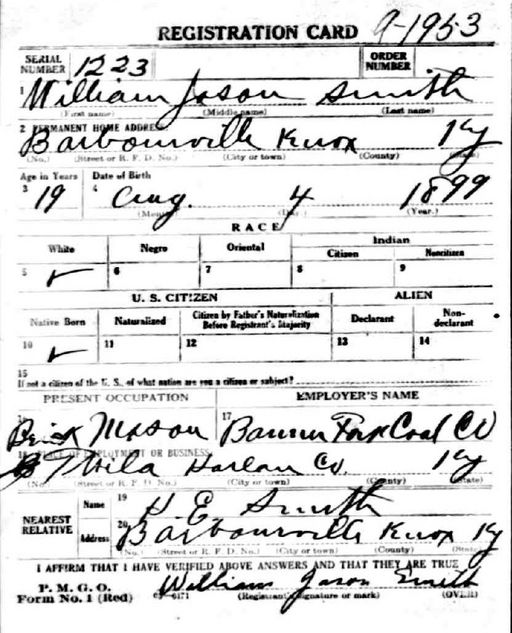 REGISTRATION CARD 9-1953
SERIAL NUMBER 1223 ORDER NUMBER
1 William Jason Smith
(First name) (Middle name) (Last name)
2 PERMANENT HOME ADDRESS
Barbourville Knox Ky
(No.) (Street or R. F. D. No.) (City or town) (County) (State)
Age in Years Date of Birth
3 19 4 Aug. 4 1899
(Month) (Day.) (Year.)
RACE
White Negro Oriental Indian
Citizen Noncitizen
5 ✓ 6 7 8 9
U. S. CITIZEN ALIEN
Native Born Naturalized Citizen by Father's Naturalization Before Registrant's Majority Declarant Non-declarant
10 ✓ 11 12 13 14
15
If not a citizen of the U. S., of what nation are you a citizen or subject?
PRESENT OCCUPATION EMPLOYER'S NAME
Brick Mason 17 Banner Fork Coal Co
18 PLACE OF EMPLOYMENT OR BUSINESS
Harlan Co. Ky
(No.) (Street or R. F. D. No.) (City or town) (County) (State)
NEAREST RELATIVE Name 19 H. E. Smith
Address 20 Barbourville Knox Ky
(No.) (Street or R. F. D. No.) (City or town) (County) (State)
I AFFIRM THAT I HAVE VERIFIED ABOVE ANSWERS AND THAT THEY ARE TRUE
P. M. G. O.
Form No. 1 (Red) William Jason Smith
(Registrant's signature or mark) (OVER)